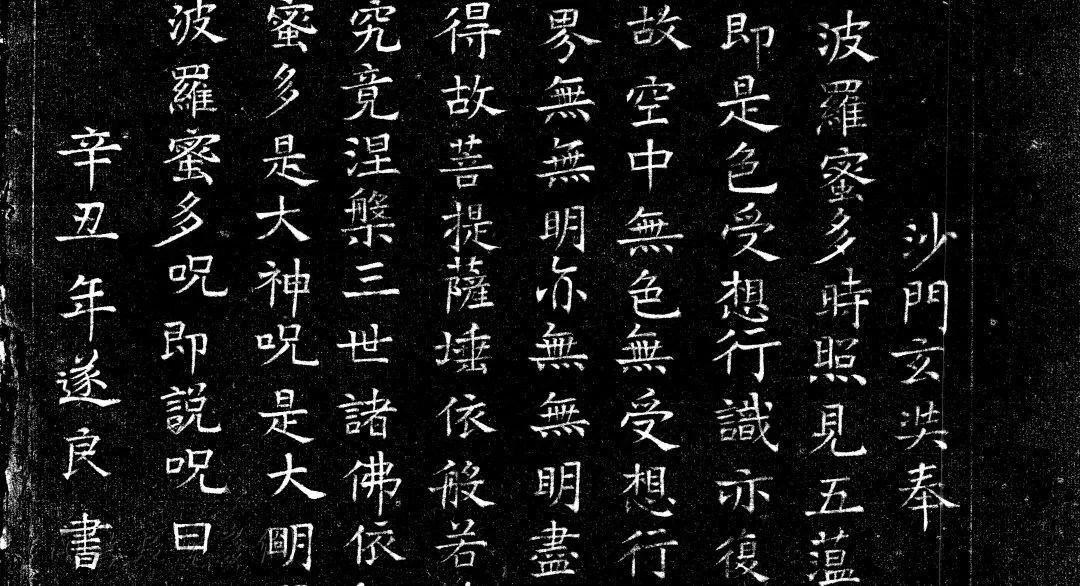 沙門玄奘奉
波羅蜜多時照見五蕰
即是色受想行識亦復
故空中無色無受想行
界無無明亦無無明盡
得故菩提薩埵依般若
究竟涅槃三世諸佛依
蜜多是大神呪是大明
波羅蜜多呪即説呪曰
辛丑年遂良書